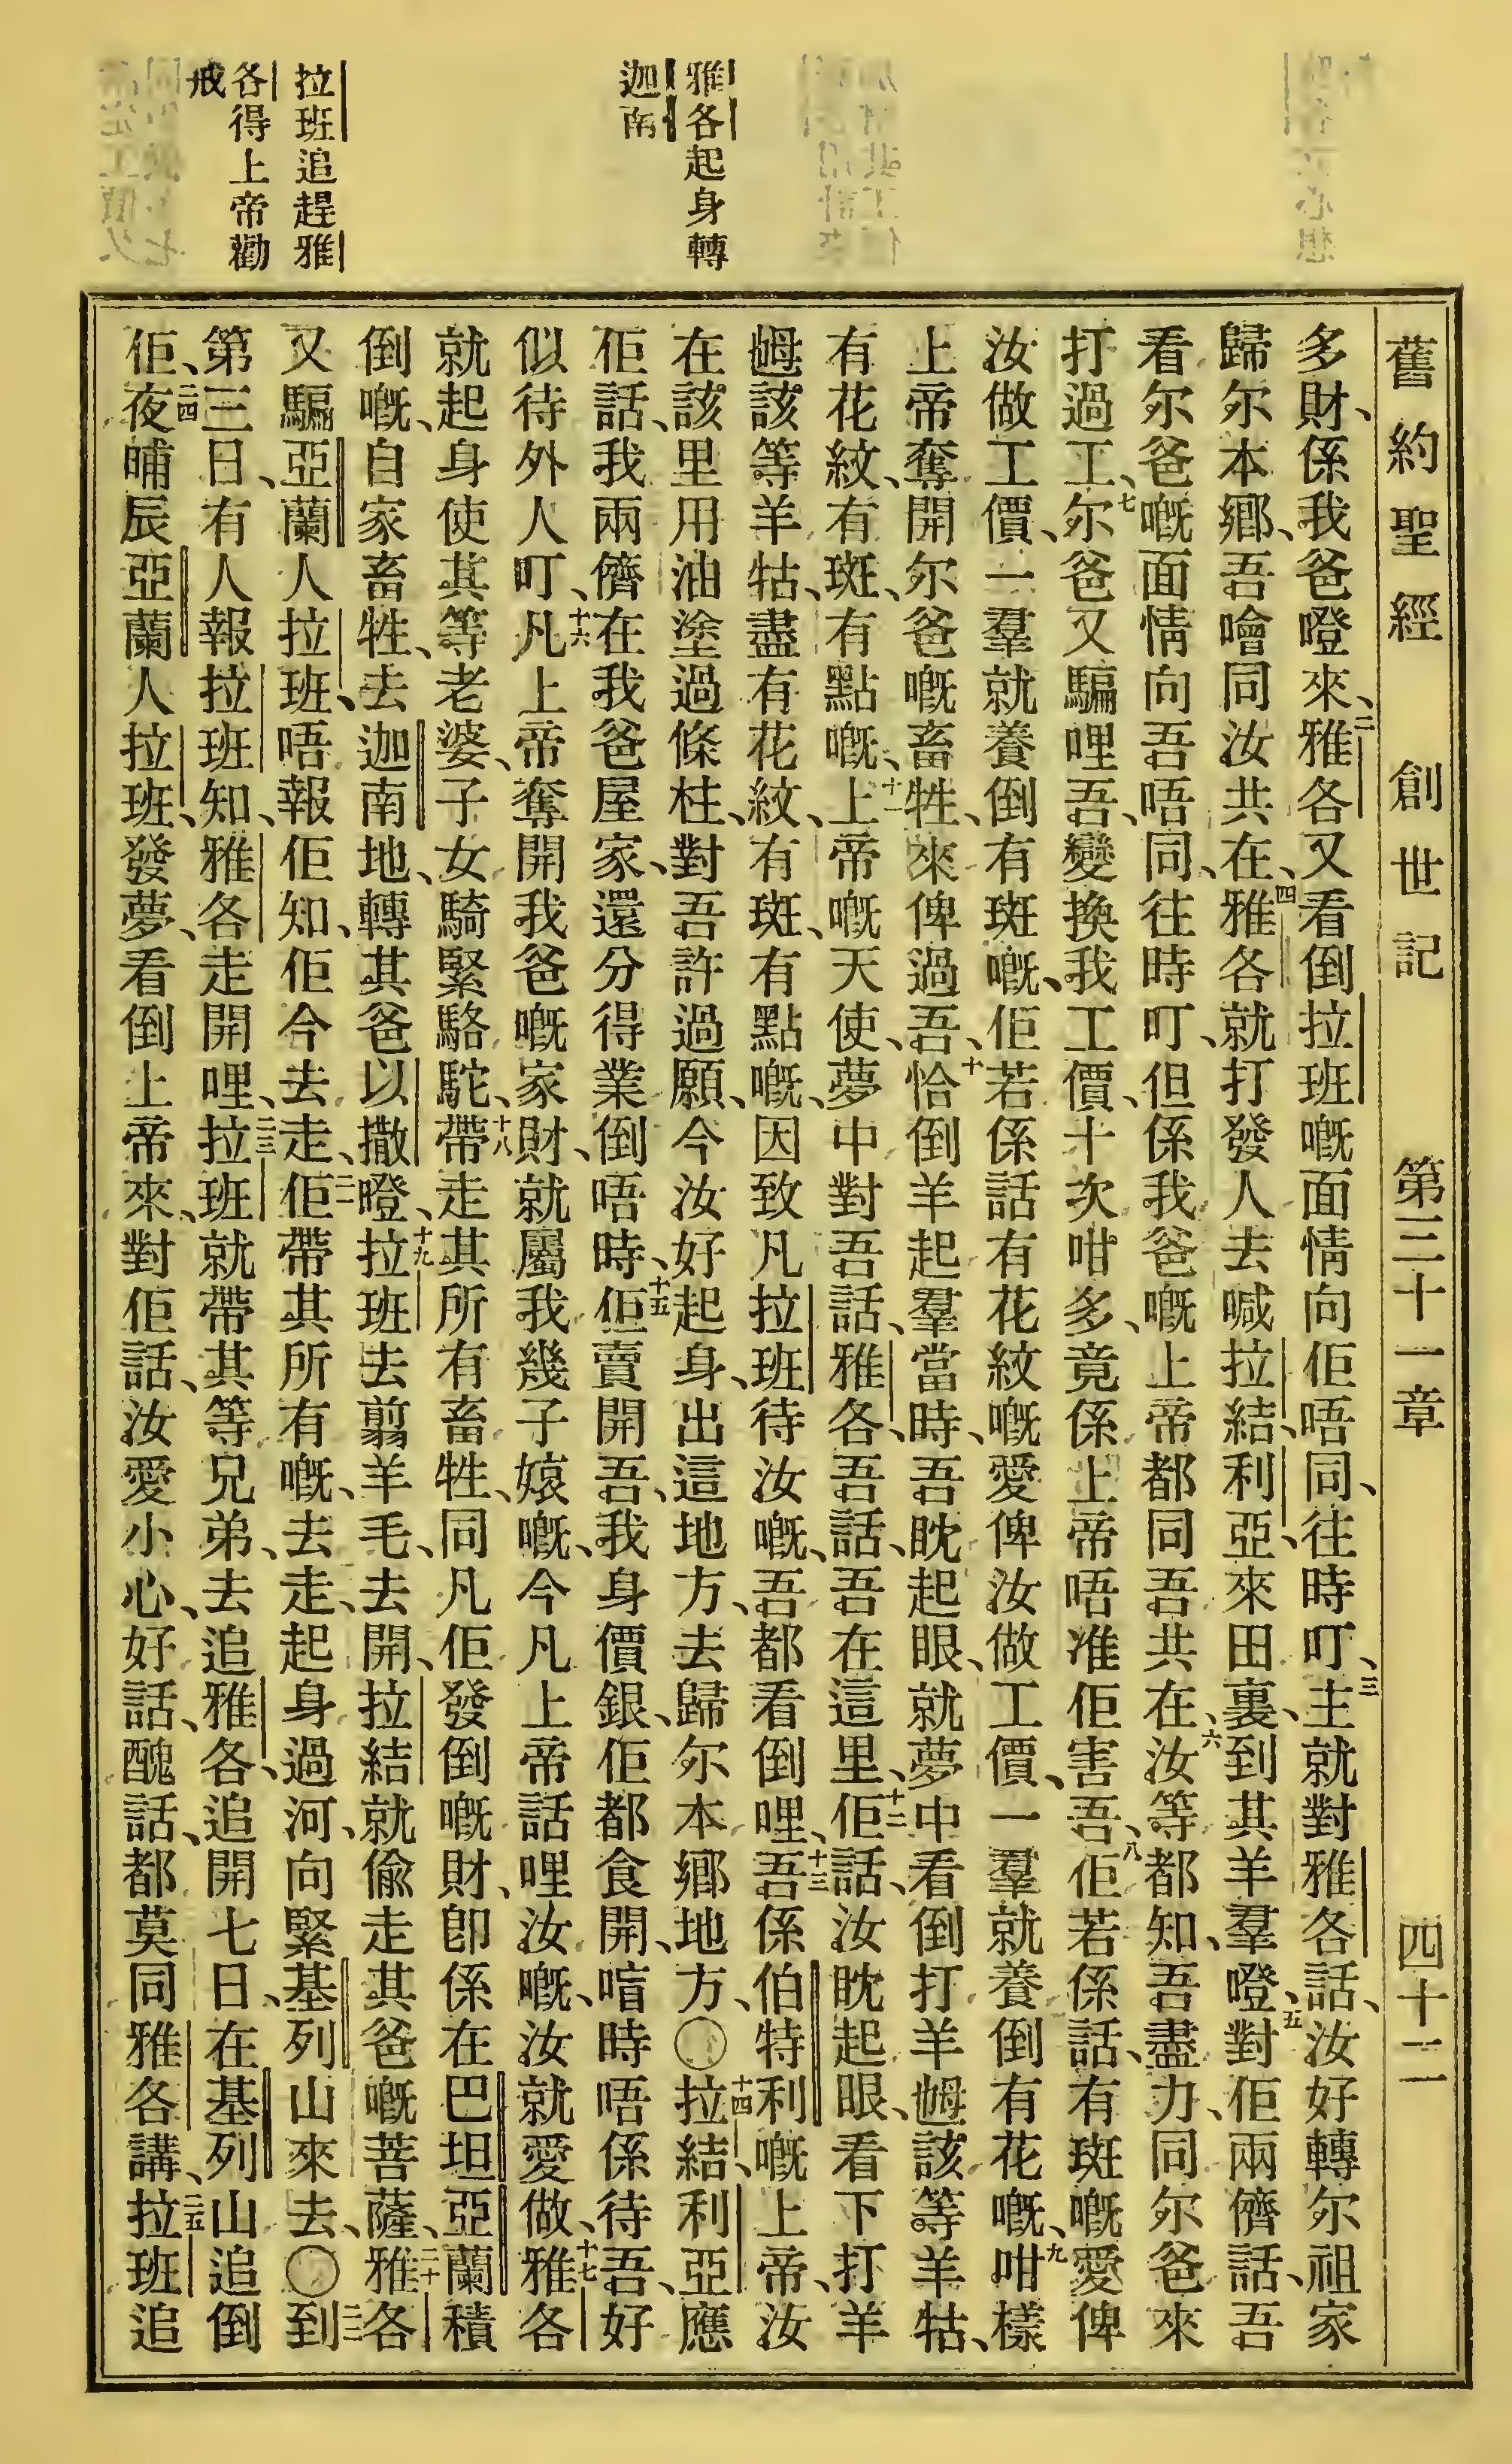 舊約聖經 創世記 第三十一章 四十二
雅各起身轉
迦南
拉班追趕雅
各得上帝勸
戒
多財、係我爸噔來、二雅各又看倒拉班嘅面情向佢唔同、往時叮、三主就對雅各話、汝好轉尔祖家
歸尔本鄉、吾噲同汝共在、四雅各就打發人去喊拉結、利亞、來田裏、到其羊羣噔、五對佢兩儕話、吾
看尔爸嘅面情向吾唔同、往時叮、但係我爸嘅上帝都同吾共在、六汝等都知、吾盡力、同尔爸來
打過工、七尔爸又騙哩吾、變換我工價、十次咁多、竟係上帝唔准佢害吾、八佢若係話、有斑嘅愛俾
汝做工價、一羣就養倒有斑嘅、佢若係話有花紋嘅愛俾汝做工價、一羣就養倒有花嘅、九咁樣
上帝奪開尔爸嘅畜牲、來俾過吾、十恰倒羊起羣當時、吾眈起眼、就夢中看倒打羊乸該等羊牯、
有花紋、有斑、有點嘅、十一上帝嘅天使、夢中對吾話、雅各、吾話、吾在這里、十二佢話、汝眈起眼、看下打羊
乸該等羊牯、盡有花紋、有斑、有點嘅、因致凡拉班待汝嘅、吾都看倒哩、十三吾係伯特利嘅上帝、汝
在該里用油塗過條柱、對吾許過願、今汝好起身、出這地方、去歸尔本鄉地方、〇十四拉結、利亞應
佢話、我兩儕在我爸屋家、還分得業倒唔時、十五佢賣開吾、我身價銀、佢都食開、唁時唔係待吾、好
似待外人叮、十六凡上帝奪開我爸嘅家財、就屬我幾子嬡嘅、今凡上帝話哩汝嘅、汝就愛做、十七雅各
就起身使其等老婆、子女騎緊駱駝、十八帶走其所有畜牲、同凡佢發倒嘅財、卽係在巴坦亞蘭積
倒嘅、自家畜牲、去迦南地、轉其爸以撒噔、十九拉班去翦羊毛、去開、拉結就偷走其爸嘅菩薩、二十雅各
又騙亞蘭人拉班、唔報佢知、佢今去走、二一佢帶其所有嘅、去走、起身過河、向緊基列山來去、〇二二到
第三日、有人報拉班知、雅各走開哩、二三拉班就帶其等兄弟、去追雅各、追開七日、在基列山追倒
佢、二四夜晡辰亞蘭人拉班、發夢、看倒上帝來、對佢話、汝愛小心、好話、醜話、都莫同雅各講、二五拉班追